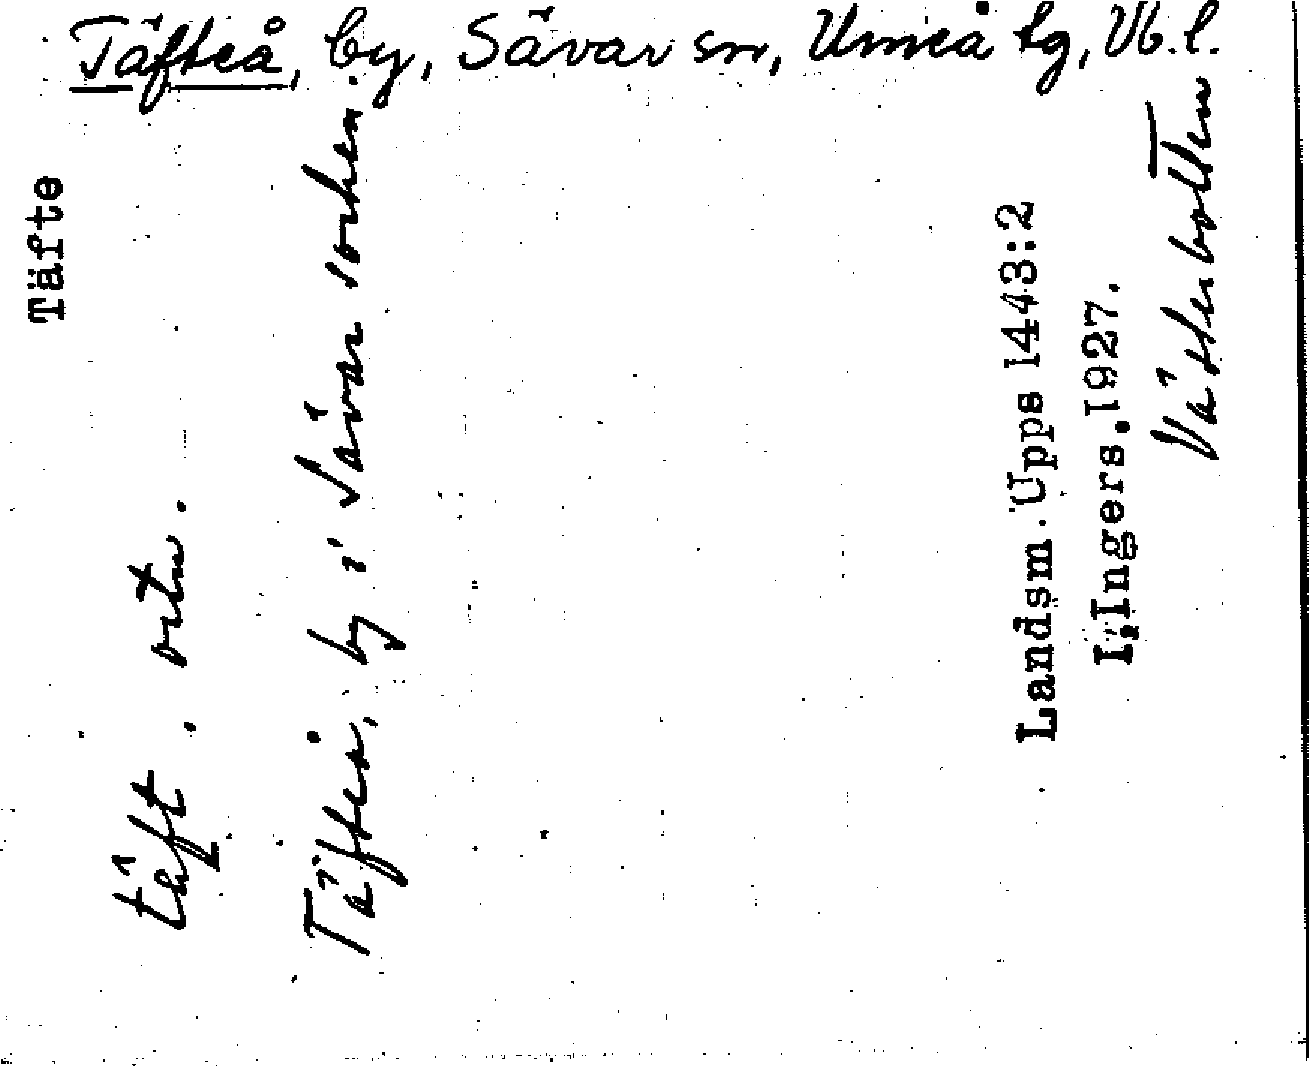 Täfteå, by, Sävar sn, Umeå tg, Vb.l.
Täfte
täft. ortn.
Täfteå, by i Sävar socken.
Landsm. Upps 1443:2
I. Ingers. 1927.
Västerbotten